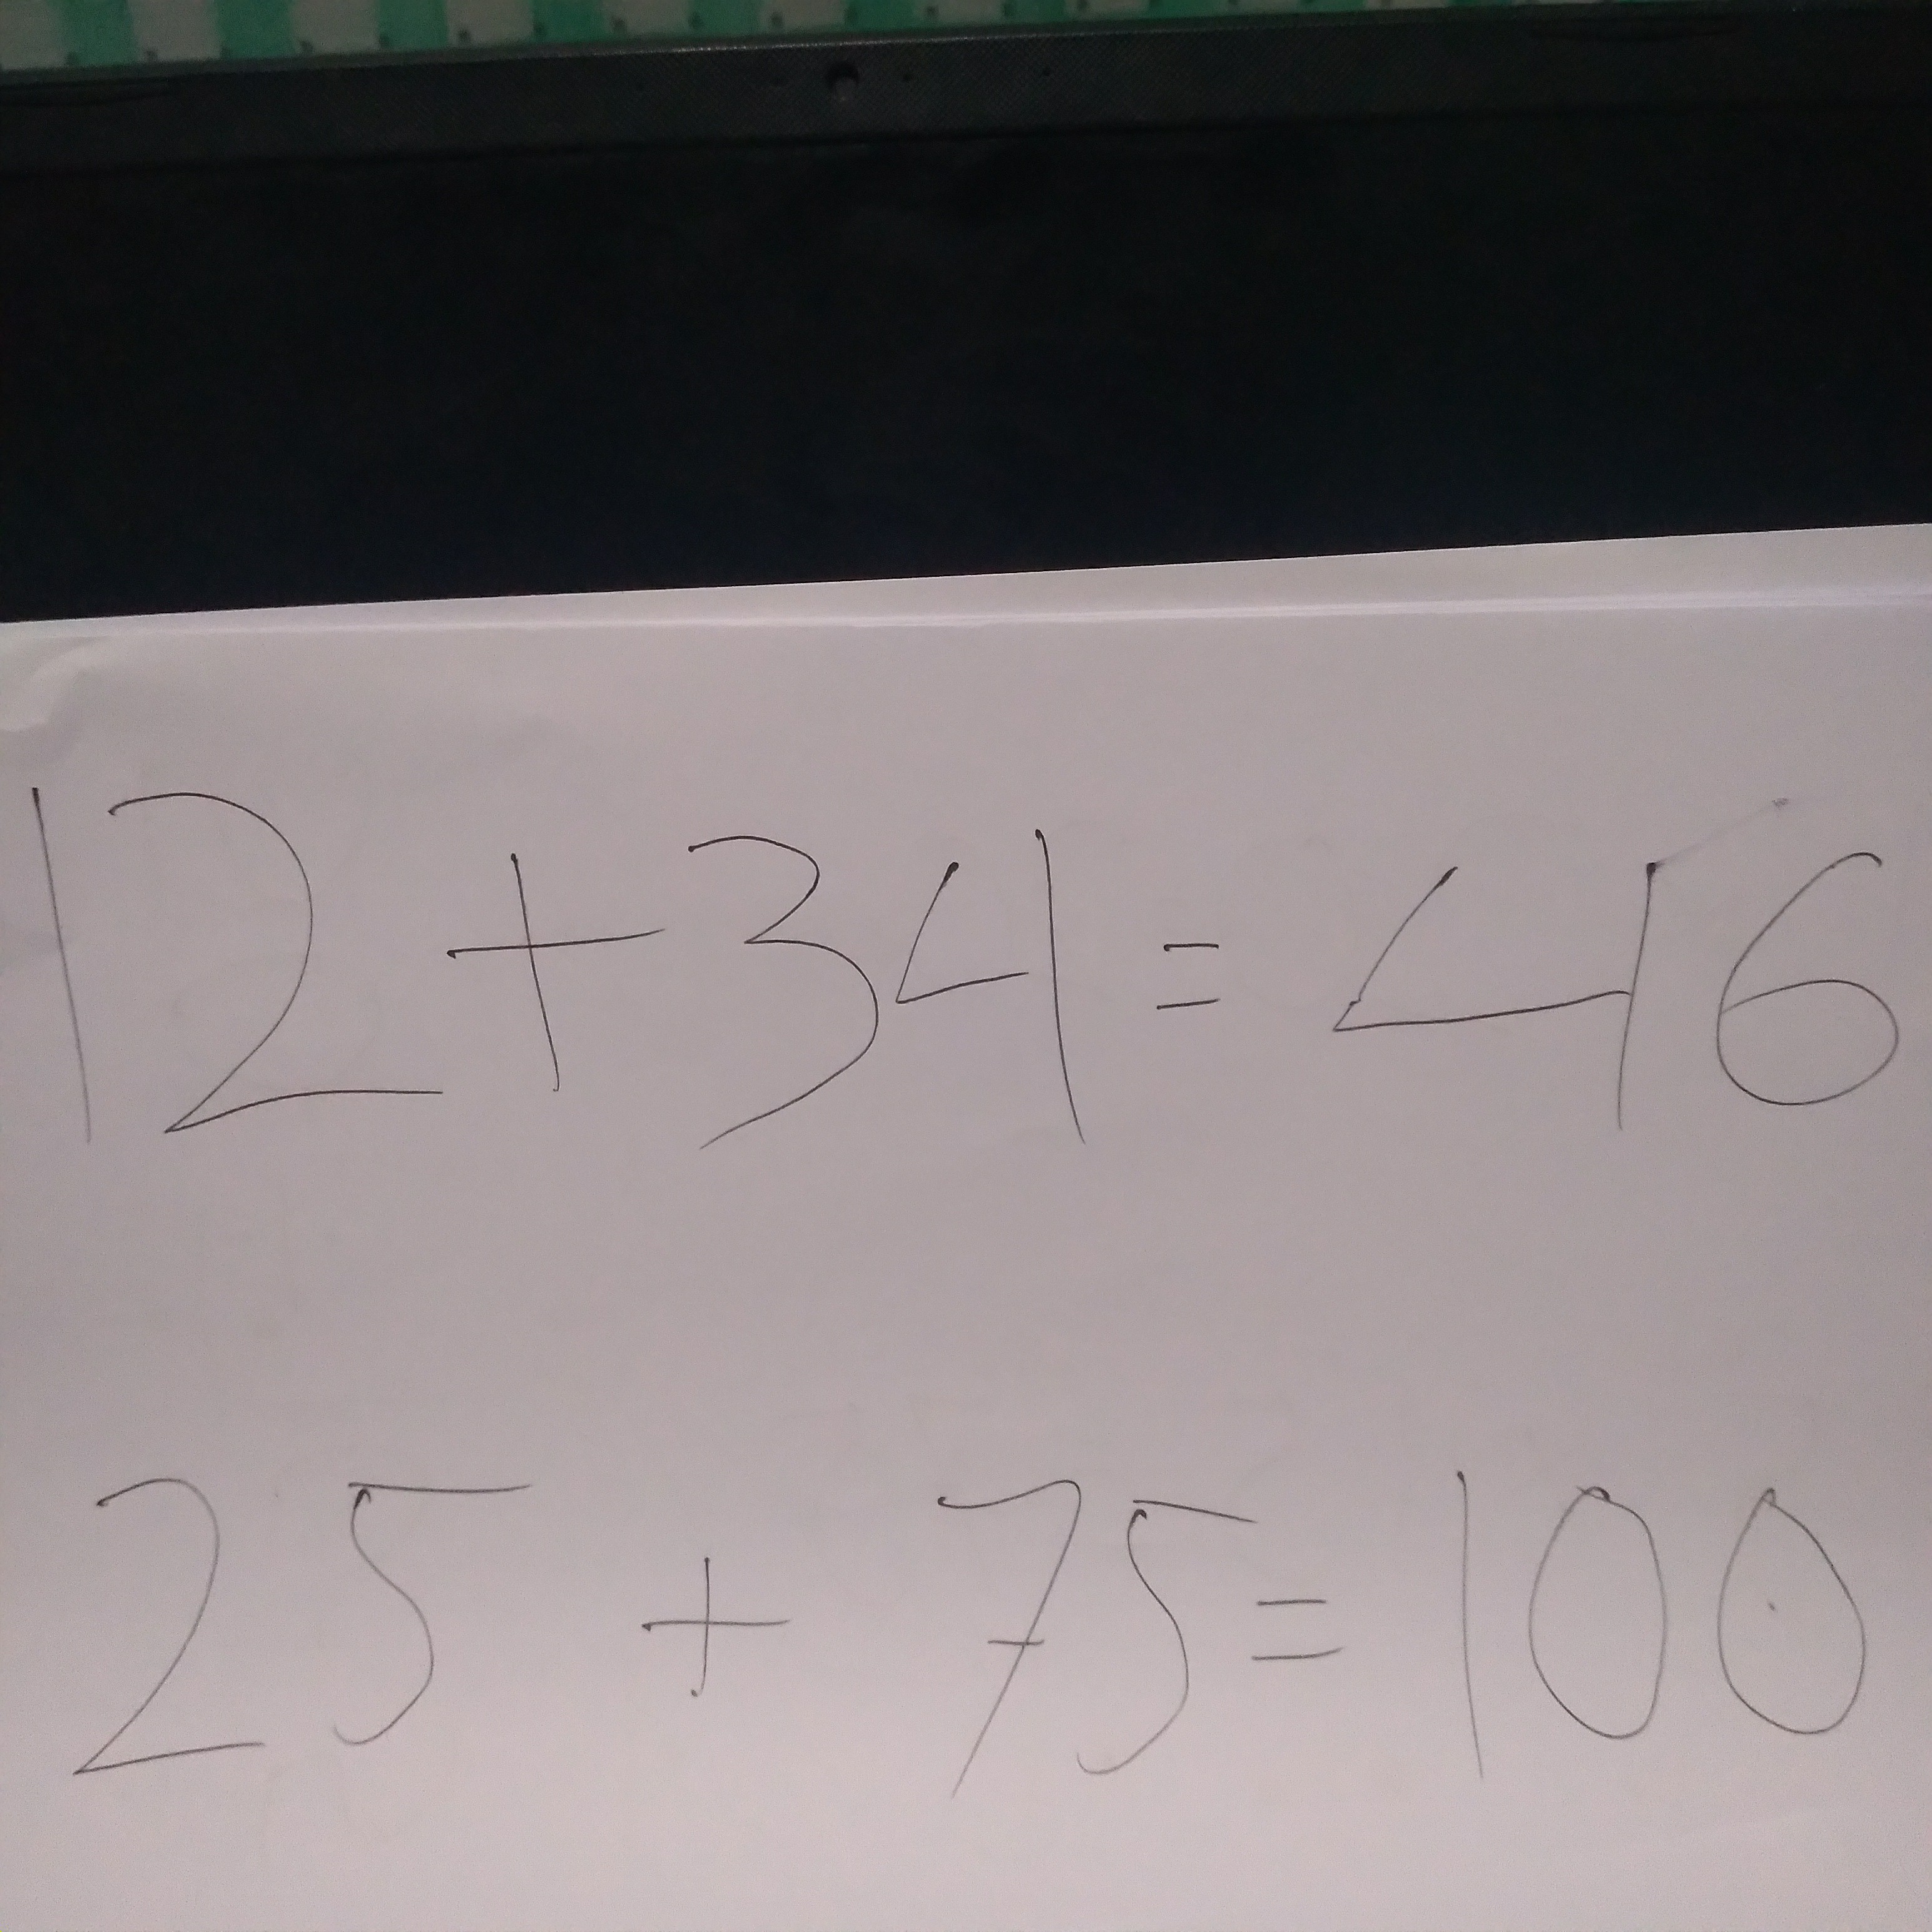 12+34=46
25+75=100